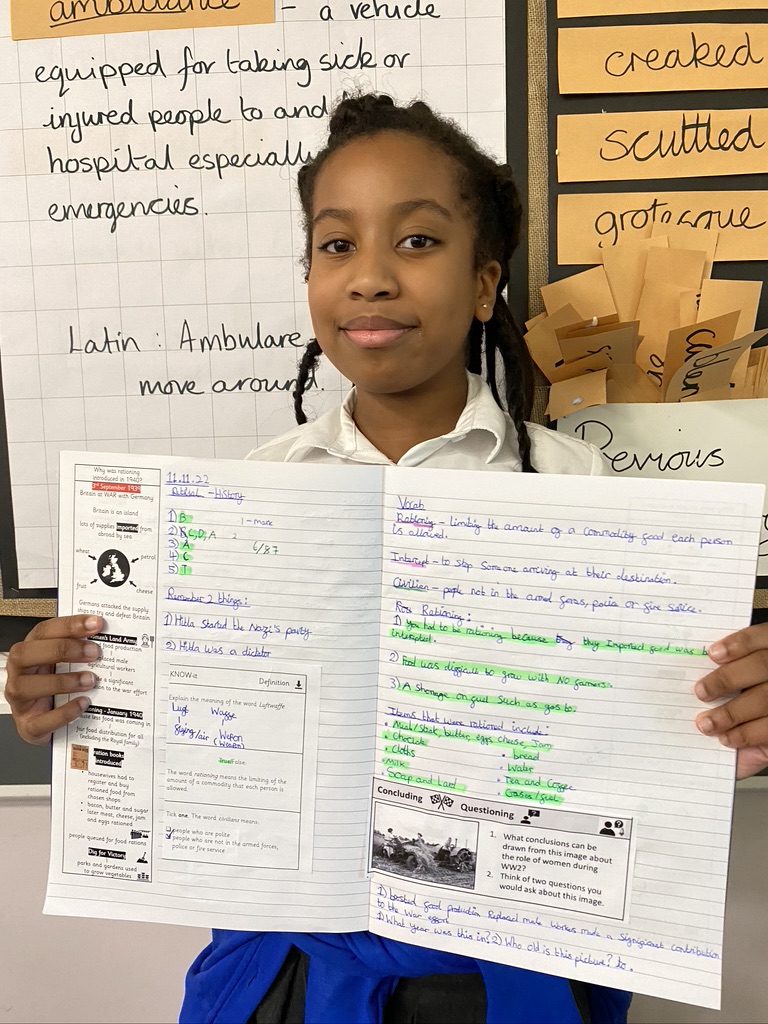 ambulance - a vehicle
equipped for taking sick or
injured people to and
hospital especially
emergencies.
Latin : Ambulare
move around.
creaked
scuttled
grotesque
Previous
Why was rationing
introduced in 1940?
3rd September 1939
Britain at WAR with Germany
Britain is an island
lots of supplies imported from
abroad by sea
wheat
petrol
fruit
cheese
Germans attacked the supply
ships to try and defeat Britain
Women's Land Army
food production
male
agricultural
workers
a significant
to the war effort
January 1940
less food was coming in
fair food distribution for all
(including the Royal family)
ration books
introduced
• housewives had to
register and buy
rationed food from
chosen shops
• bacon, butter and sugar
• later meat, cheese, jam
and eggs rationed
people queued for food rations
Dig for Victory
parks and gardens used
to grow vegetables
11.11.22
- History
1) B
1 - mark
2) C, D, A
3) A
6/87
4) C
5) T
Remember 2 things:
1) Hitla started the Nazi's party
2) Hitla was a dictator
KNOW-it
Definition
Explain the meaning of the word Luftwaffe.
Luft Waffe
flying/air Wepon
(Weapon)
True/False:
The word rationing means the limiting of the
amount of a commodity that each person is
allowed.
Tick one. The word civilians means:
people who are polite
people who are not in the armed forces,
police or fire service
Vocab
Rationing - limiting the amount of a commodity good each person
is allowed.
Intercept - to stop someone arriving at their destination.
Civilian - people not in the armed forces, police or fire service.
For Rationing:
1) you had to be rationing because they Imported food was b
Intercepted.
2) Food was difficult to grow with NO farmers.
3) A shortage on fuel such as gas to.
Items that were rationed include:
• Meat/Steak, butter, eggs cheese, Jam
• Choclate
• bread
• Cloths
• Water
• Milk
• Tea and Coffee
• Soap and Lard
• Gases/fuel
Concluding Questioning
1. What conclusions can be
drawn from this image about
the role of women during
WW2?
2. Think of two questions you
would ask about this image.
1) boosted food production Replaced male workers made a significant contribution
to the war effort
1) What year was this in? 2) Who old is this picture? to.